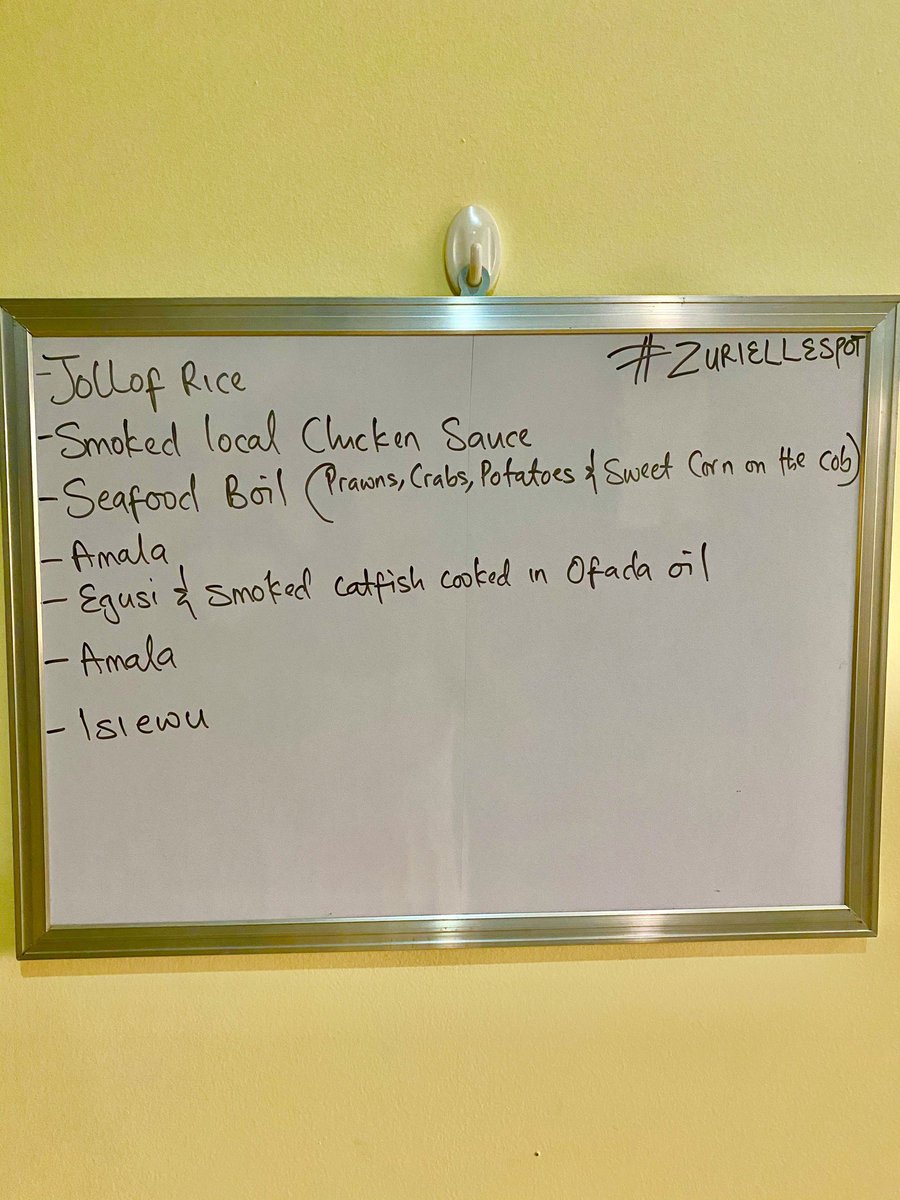 #ZURIELLESPOT
- Jollof Rice
- Smoked local Chicken Sauce
- Seafood Boil (Prawns, Crabs, Potatoes & Sweet Corn on the Cob)
- Amala
- Egusi & Smoked Catfish cooked in Ofada oil
- Amala
- Isiewu